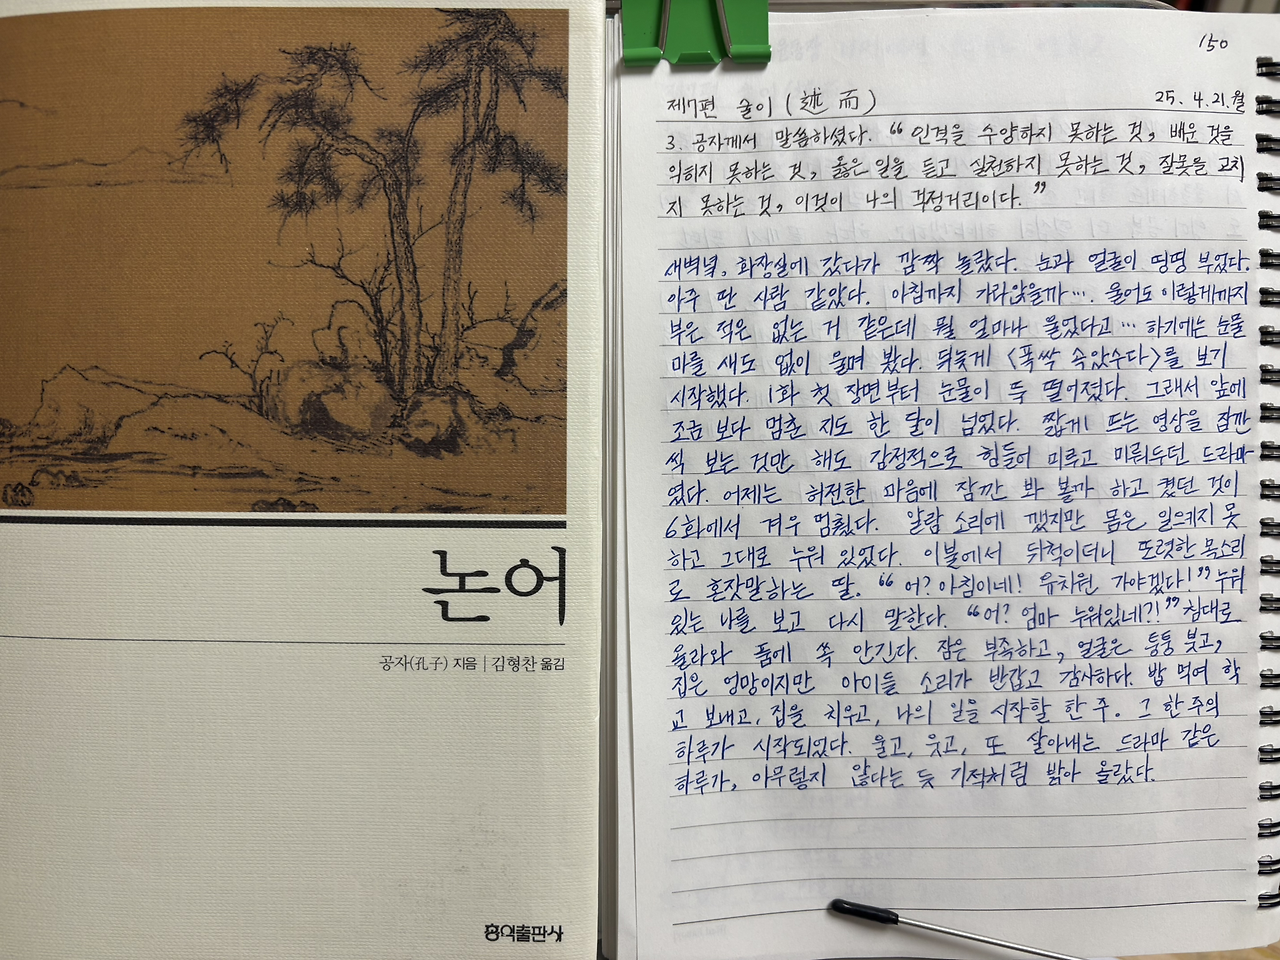 논어
공자(孔子) 지음 | 김형찬 옮김
홍익출판사
150
제7편 술이 (述而) 25. 4. 21. 월
3. 공자께서 말씀하셨다. "인격을 수양하지 못하는 것, 배운 것을
익히지 못하는 것, 옳은 일을 듣고 실천하지 못하는 것, 잘못을 고치
지 못하는 것, 이것이 나의 걱정거리이다."
새벽녘, 화장실에 갔다가 깜짝 놀랐다. 눈과 얼굴이 띵띵 부었다.
아주 딴 사람 같았다. 아침까지 가라앉을까…. 울어도 이렇게까지
부은 적은 없는 거 같은데 뭘 얼마나 울었다고… 하기에는 눈물
마를 새도 없이 울며 봤다. 뒤늦게 <폭싹 속았수다>를 보기
시작했다. 1화 첫 장면부터 눈물이 두 떨어졌다. 그래서 앞에
조금 보다 멈춘 지도 한 달이 넘었다. 짧게 뜨는 영상을 잠깐
씩 보는 것만 해도 감정적으로 힘들어 미루고 미뤄두던 드라마
였다. 어제는 허전한 마음에 잠깐 봐 볼까 하고 켰던 것이
6화에서 겨우 멈췄다. 알람 소리에 깼지만 몸은 일으키지 못
하고 그대로 누워 있었다. 이불에서 뒤척이더니 또렷한 목소리
로 혼잣말하는 딸. "어? 아침이네! 유치원 가야겠다!" 누워
있는 나를 보고 다시 말한다. "어? 엄마 누워있네?!" 침대로
올라와 품에 쏙 안긴다. 잠은 부족하고, 얼굴은 퉁퉁 붓고,
집은 엉망이지만 아이들 소리가 반갑고 감사하다. 밥 먹여 학
교 보내고, 집을 치우고, 나의 일을 시작할 한 주. 그 한 주의
하루가 시작되었다. 울고, 웃고, 또 살아내는 드라마 같은
하루가, 아무렇지 않다는 듯 기적처럼 밝아 올랐다.